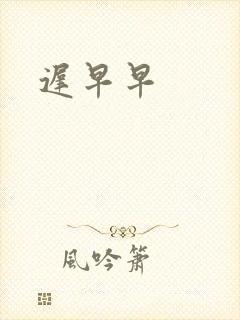 遲早早
風吟簫